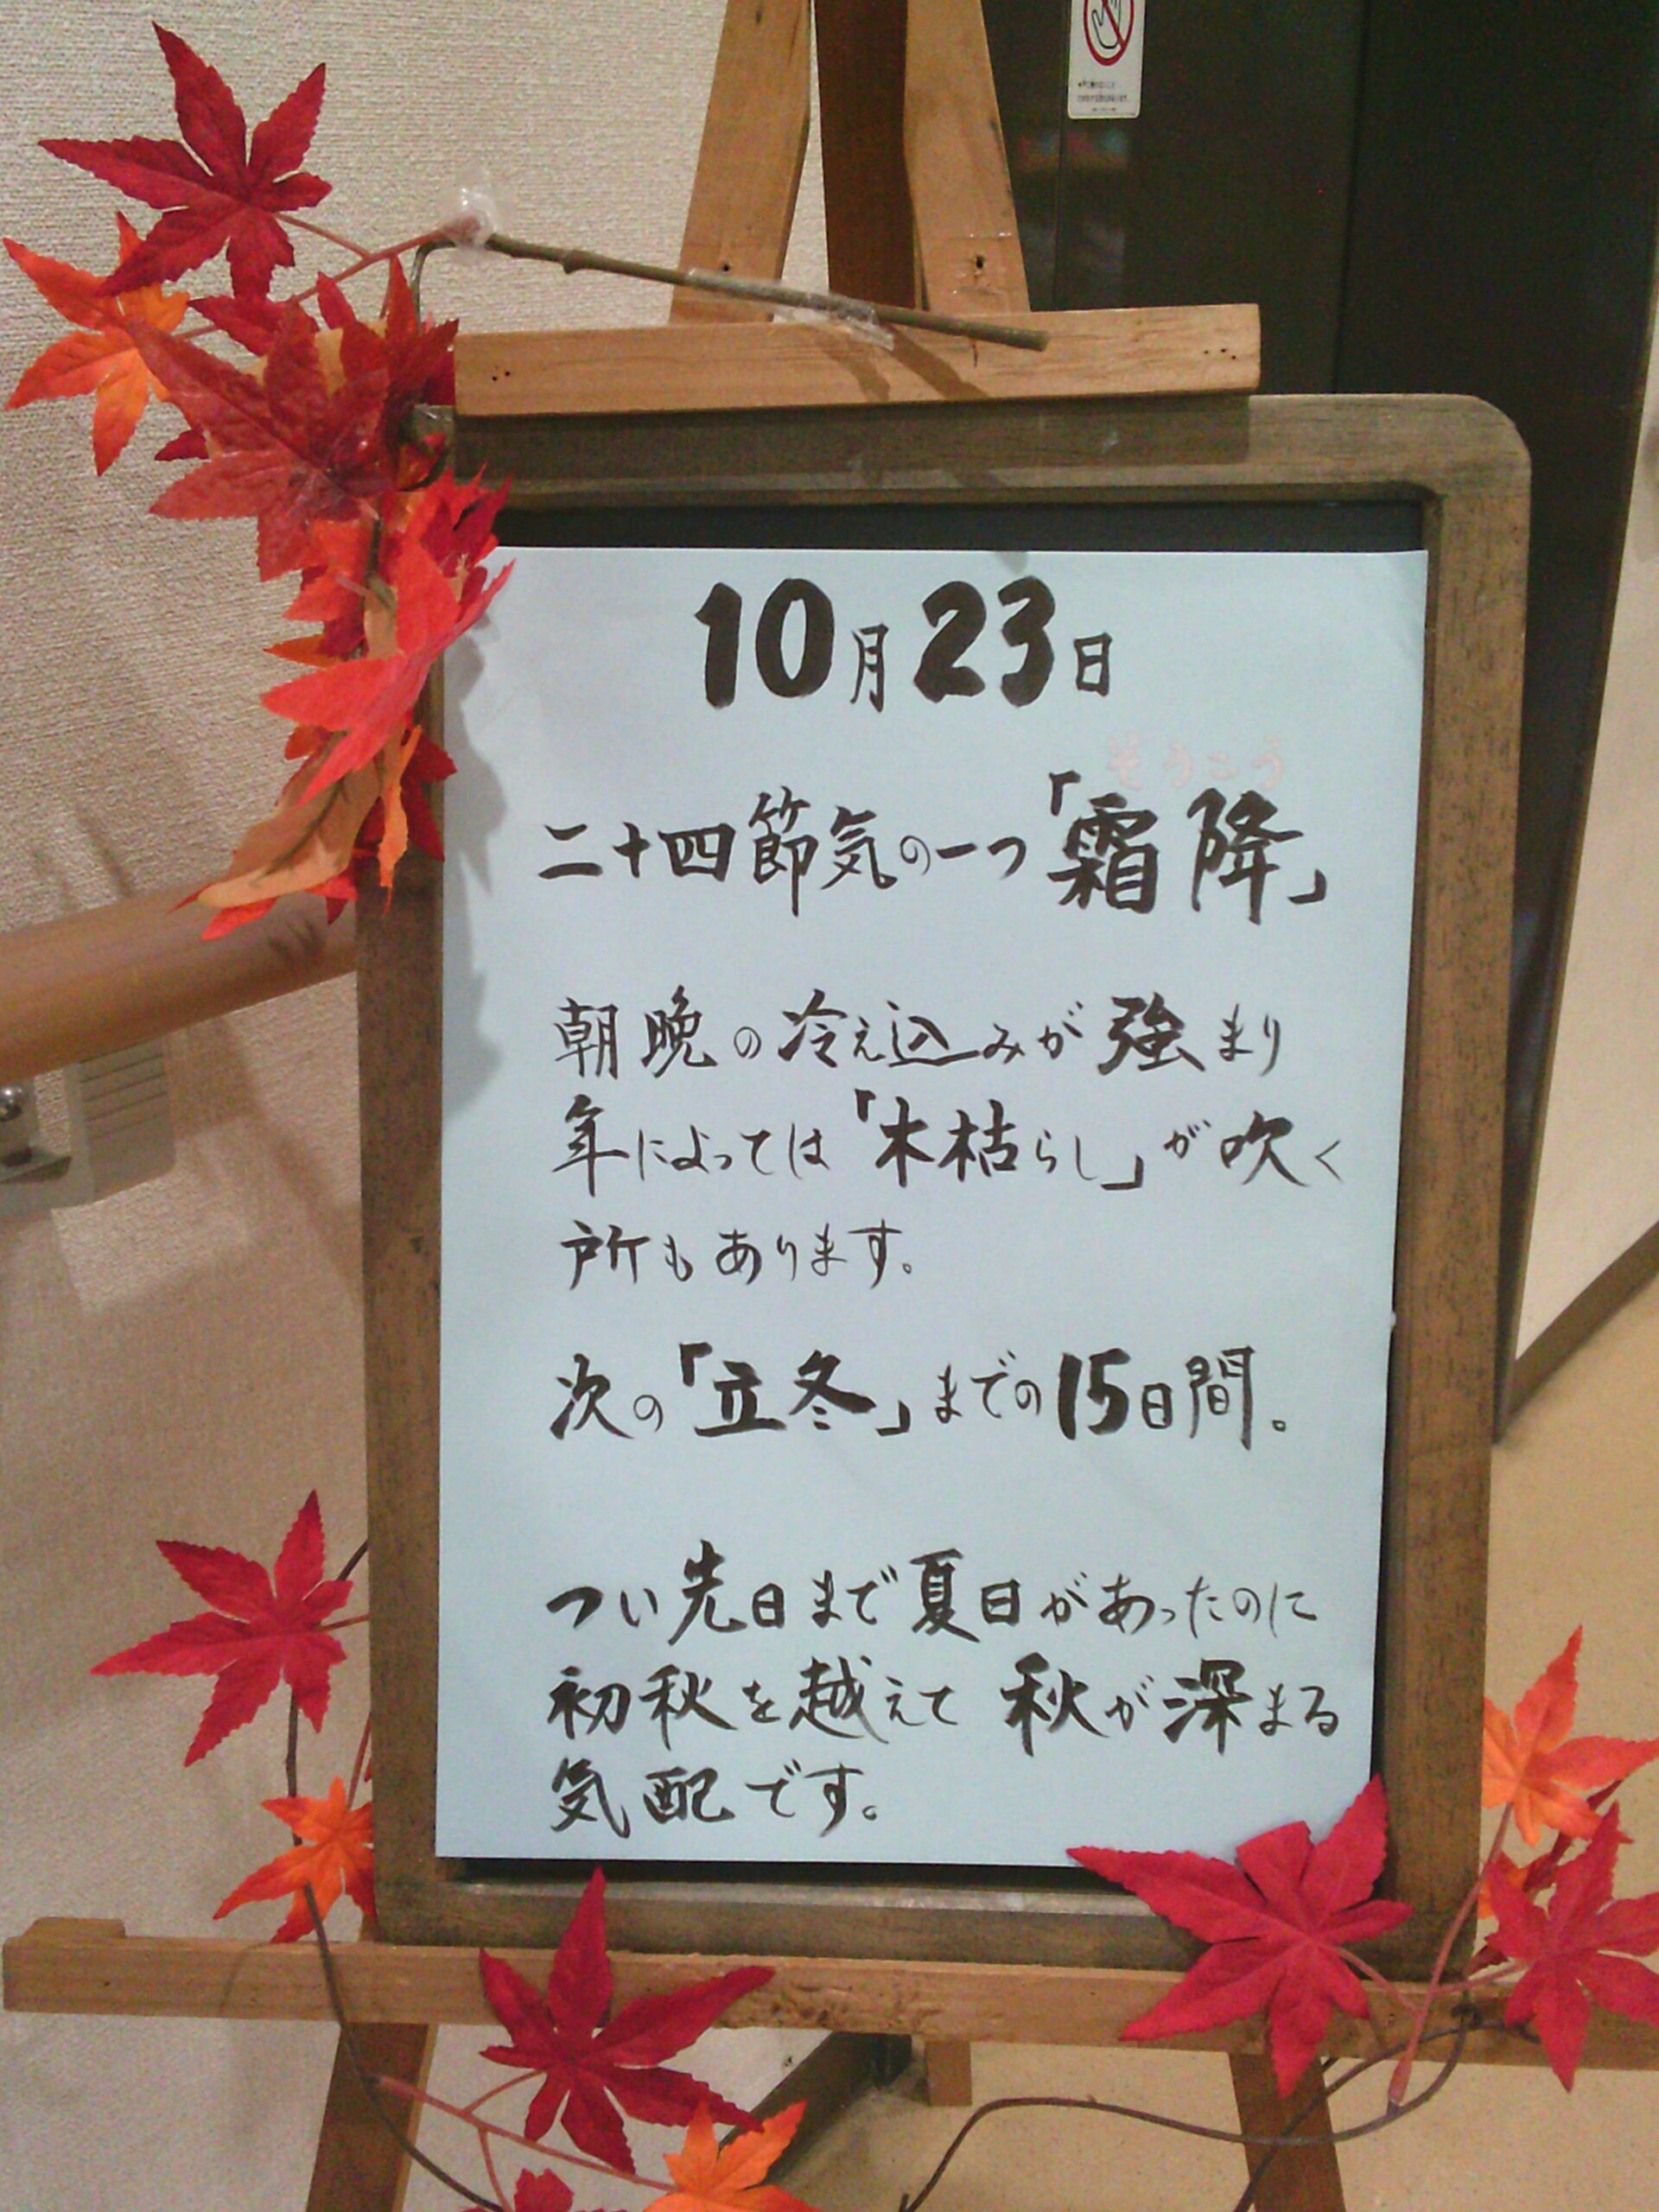 10月23日
そうこう
二十四節気の一つ「霜降」
朝晩の冷え込みが強まり
年によっては「木枯らし」が吹く
所もあります。
次の「立冬」までの15日間。
つい先日まで夏日があったのに
初秋を越えて 秋が深まる
気配です。